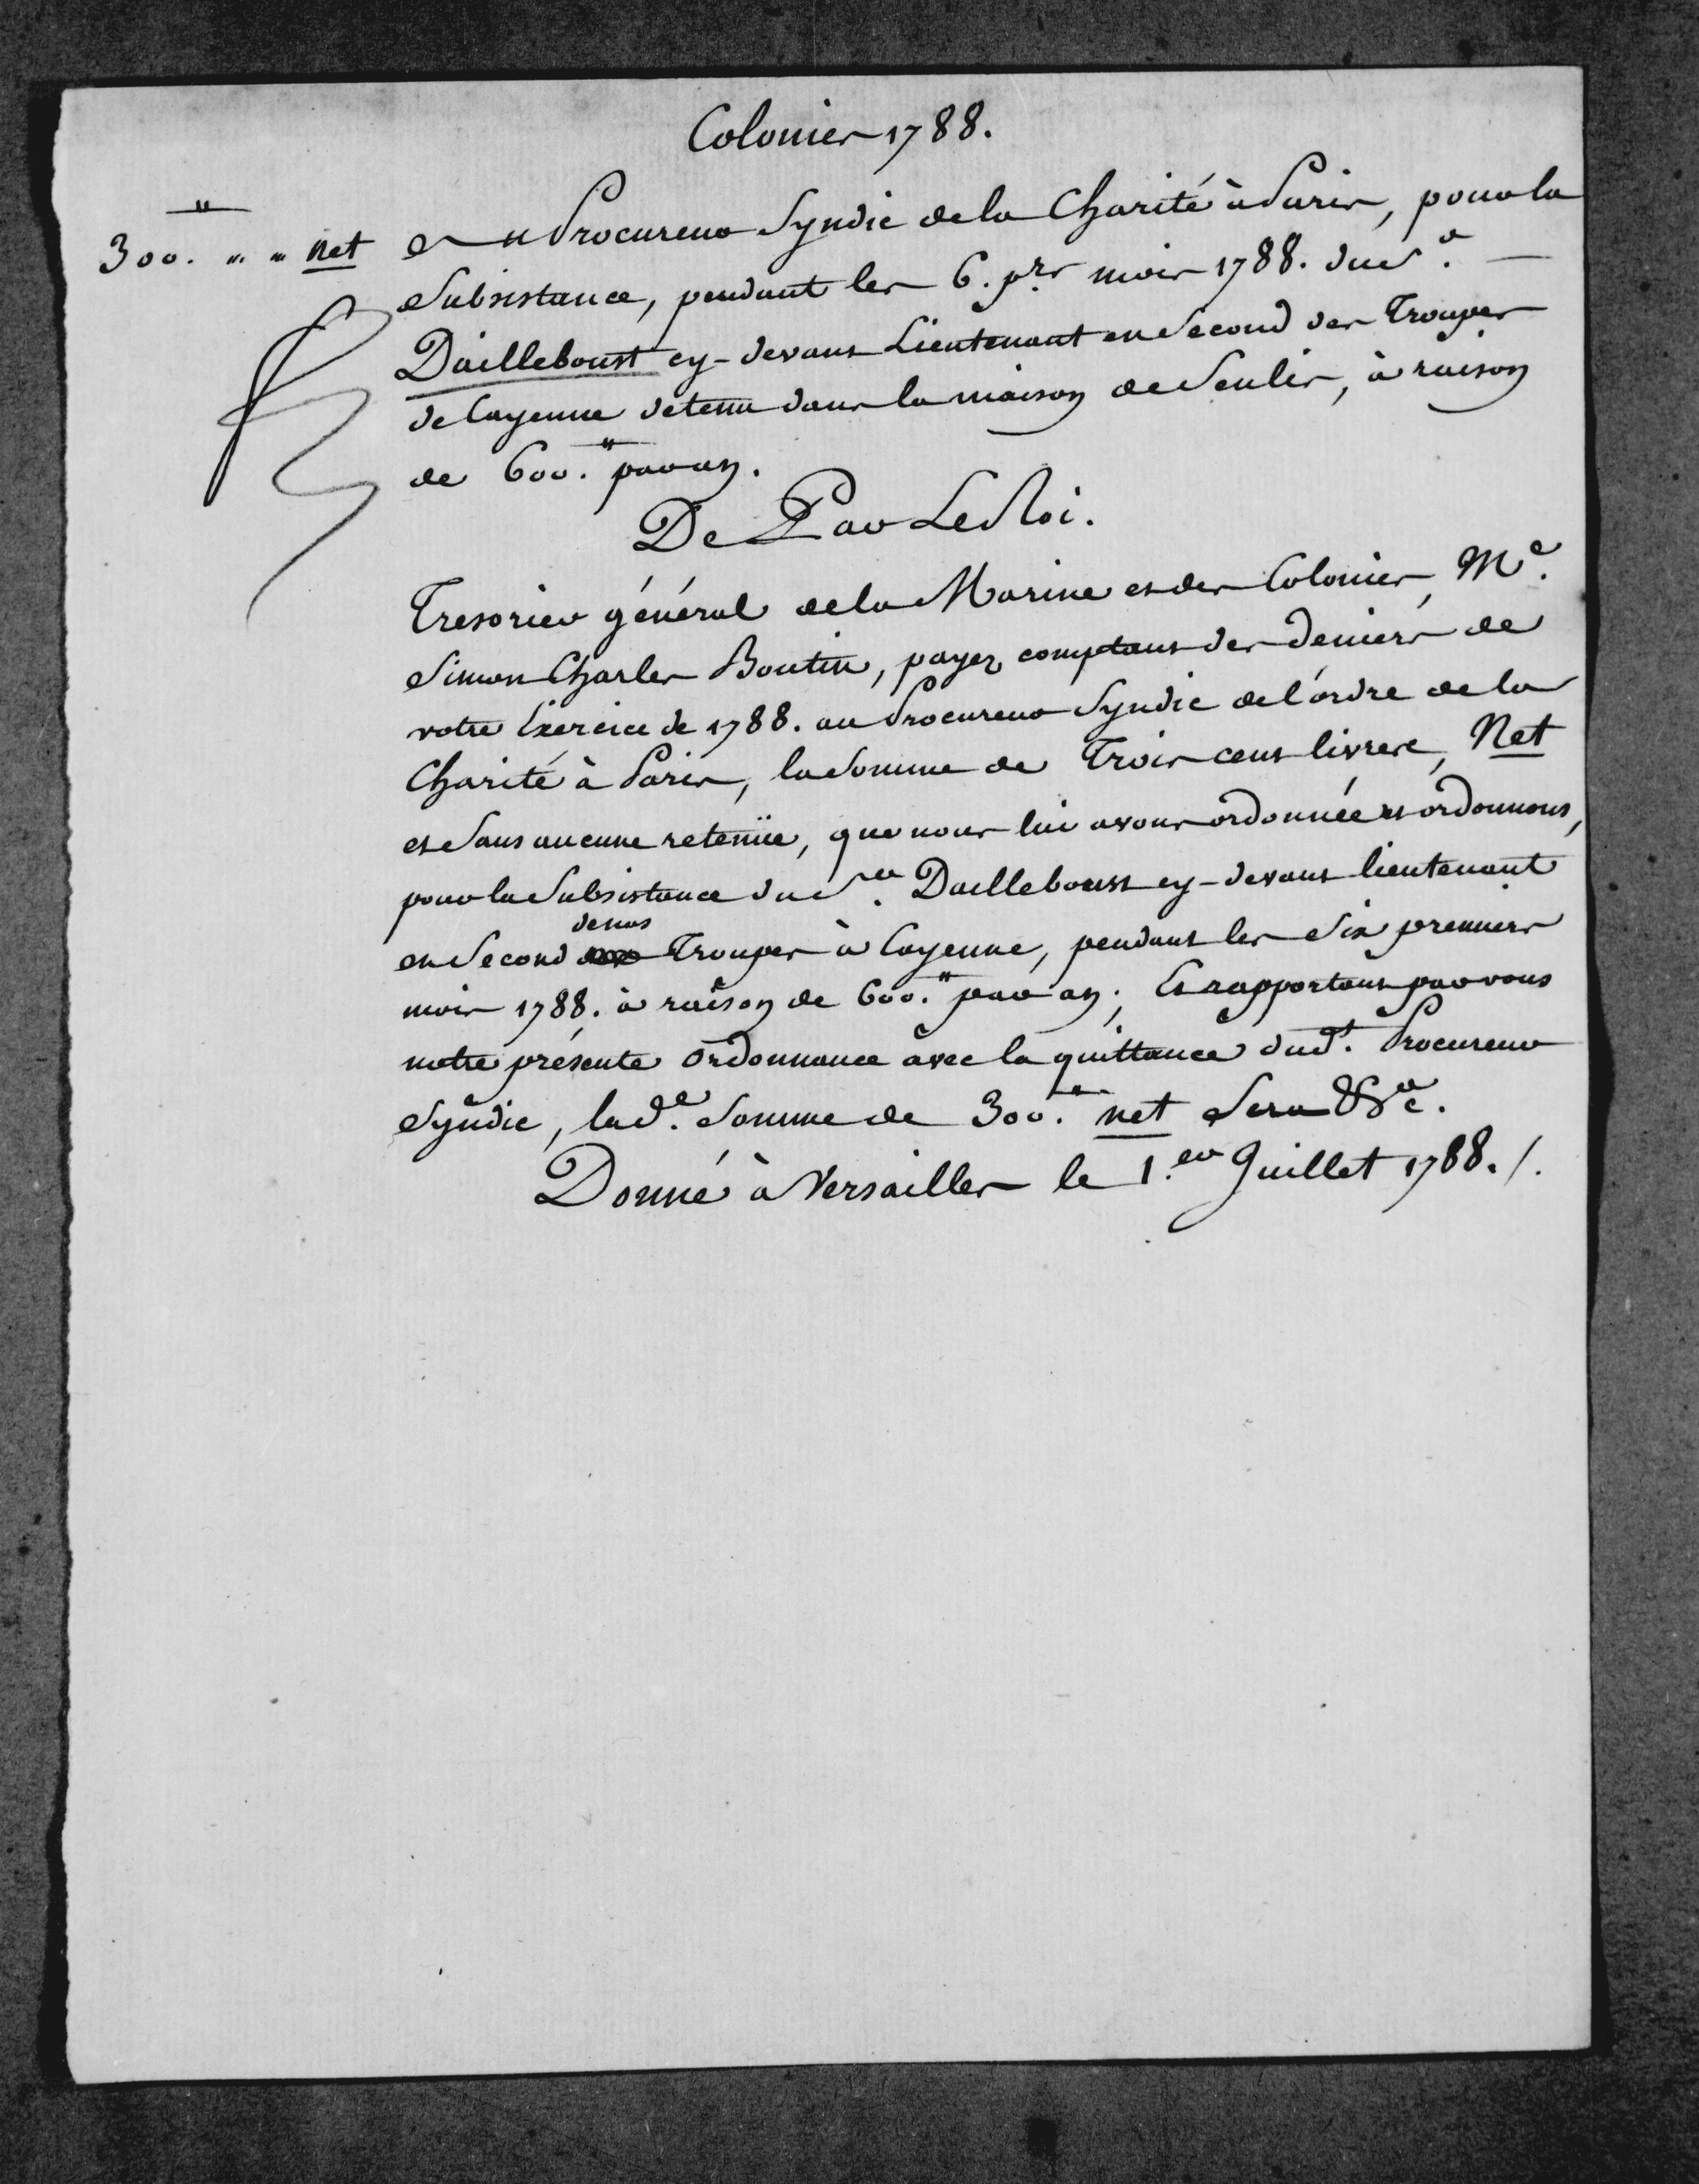 Colonies 1788.
300.ᵗᵗ " " Net
Au Procureur Syndic de la Charité à Paris, pour la
Subsistance, pendant les 6. p.rs mois 1788. du S.r
Dailleboust cy-devant Lieutenant en Second des Troupes
de Cayenne detenu dans la maison de Senlis, à raison
de 600.ᵗᵗ par an.
De Par Le Roi.
Tresorier général de la Marine et des Colonies, M.e
Simon Charles Boutin, payez comptant des deniers de
votre Exercice de 1788. au Procureur Syndic de l'ordre de la
Charité à Paris, la Somme de Trois cens livres, Net
et Sans aucune retenüe, que nous lui avons ordonnée et ordonnons,
pour la Subsistance du S.r Dailleboust cy-devant lieutenant
en Second de nos Troupes à Cayenne, pendant les Six premiers
mois 1788. à raison de 600.ᵗᵗ par an; Et rapportant par vous
notre présente Ordonnance avec la quittance dud.t Procureur
Syndic, lad.e Somme de 300.ᵗᵗ net Sera &c.a
Donné à Versailles le 1.er Juillet 1788./.